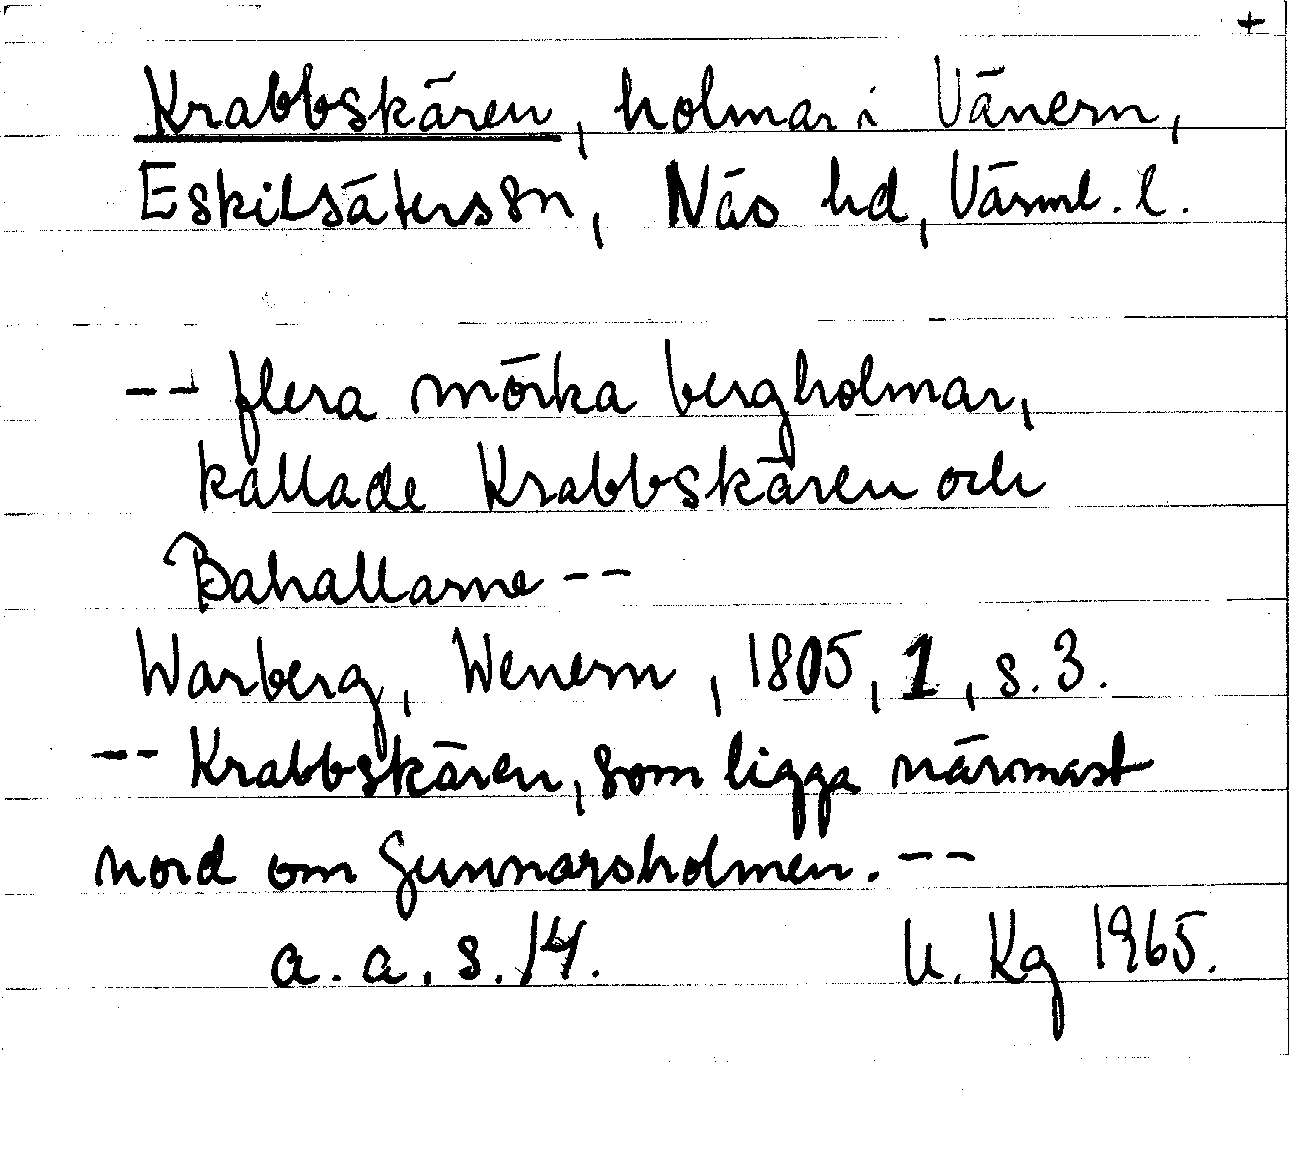 +
Krabbskären, holmar i Vänern,
Eskilsäters sn, Näs hd, Värml. l.
-- flera mörka bergholmar,
kallade Krabbskären och
Bahallarne --
Warberg, Wenern, 1805, 1, s. 3.
-- Krabbskären, som ligga närmast
nord om Gunnarsholmen. --
a. a. s. 14. U. Kg 1965.